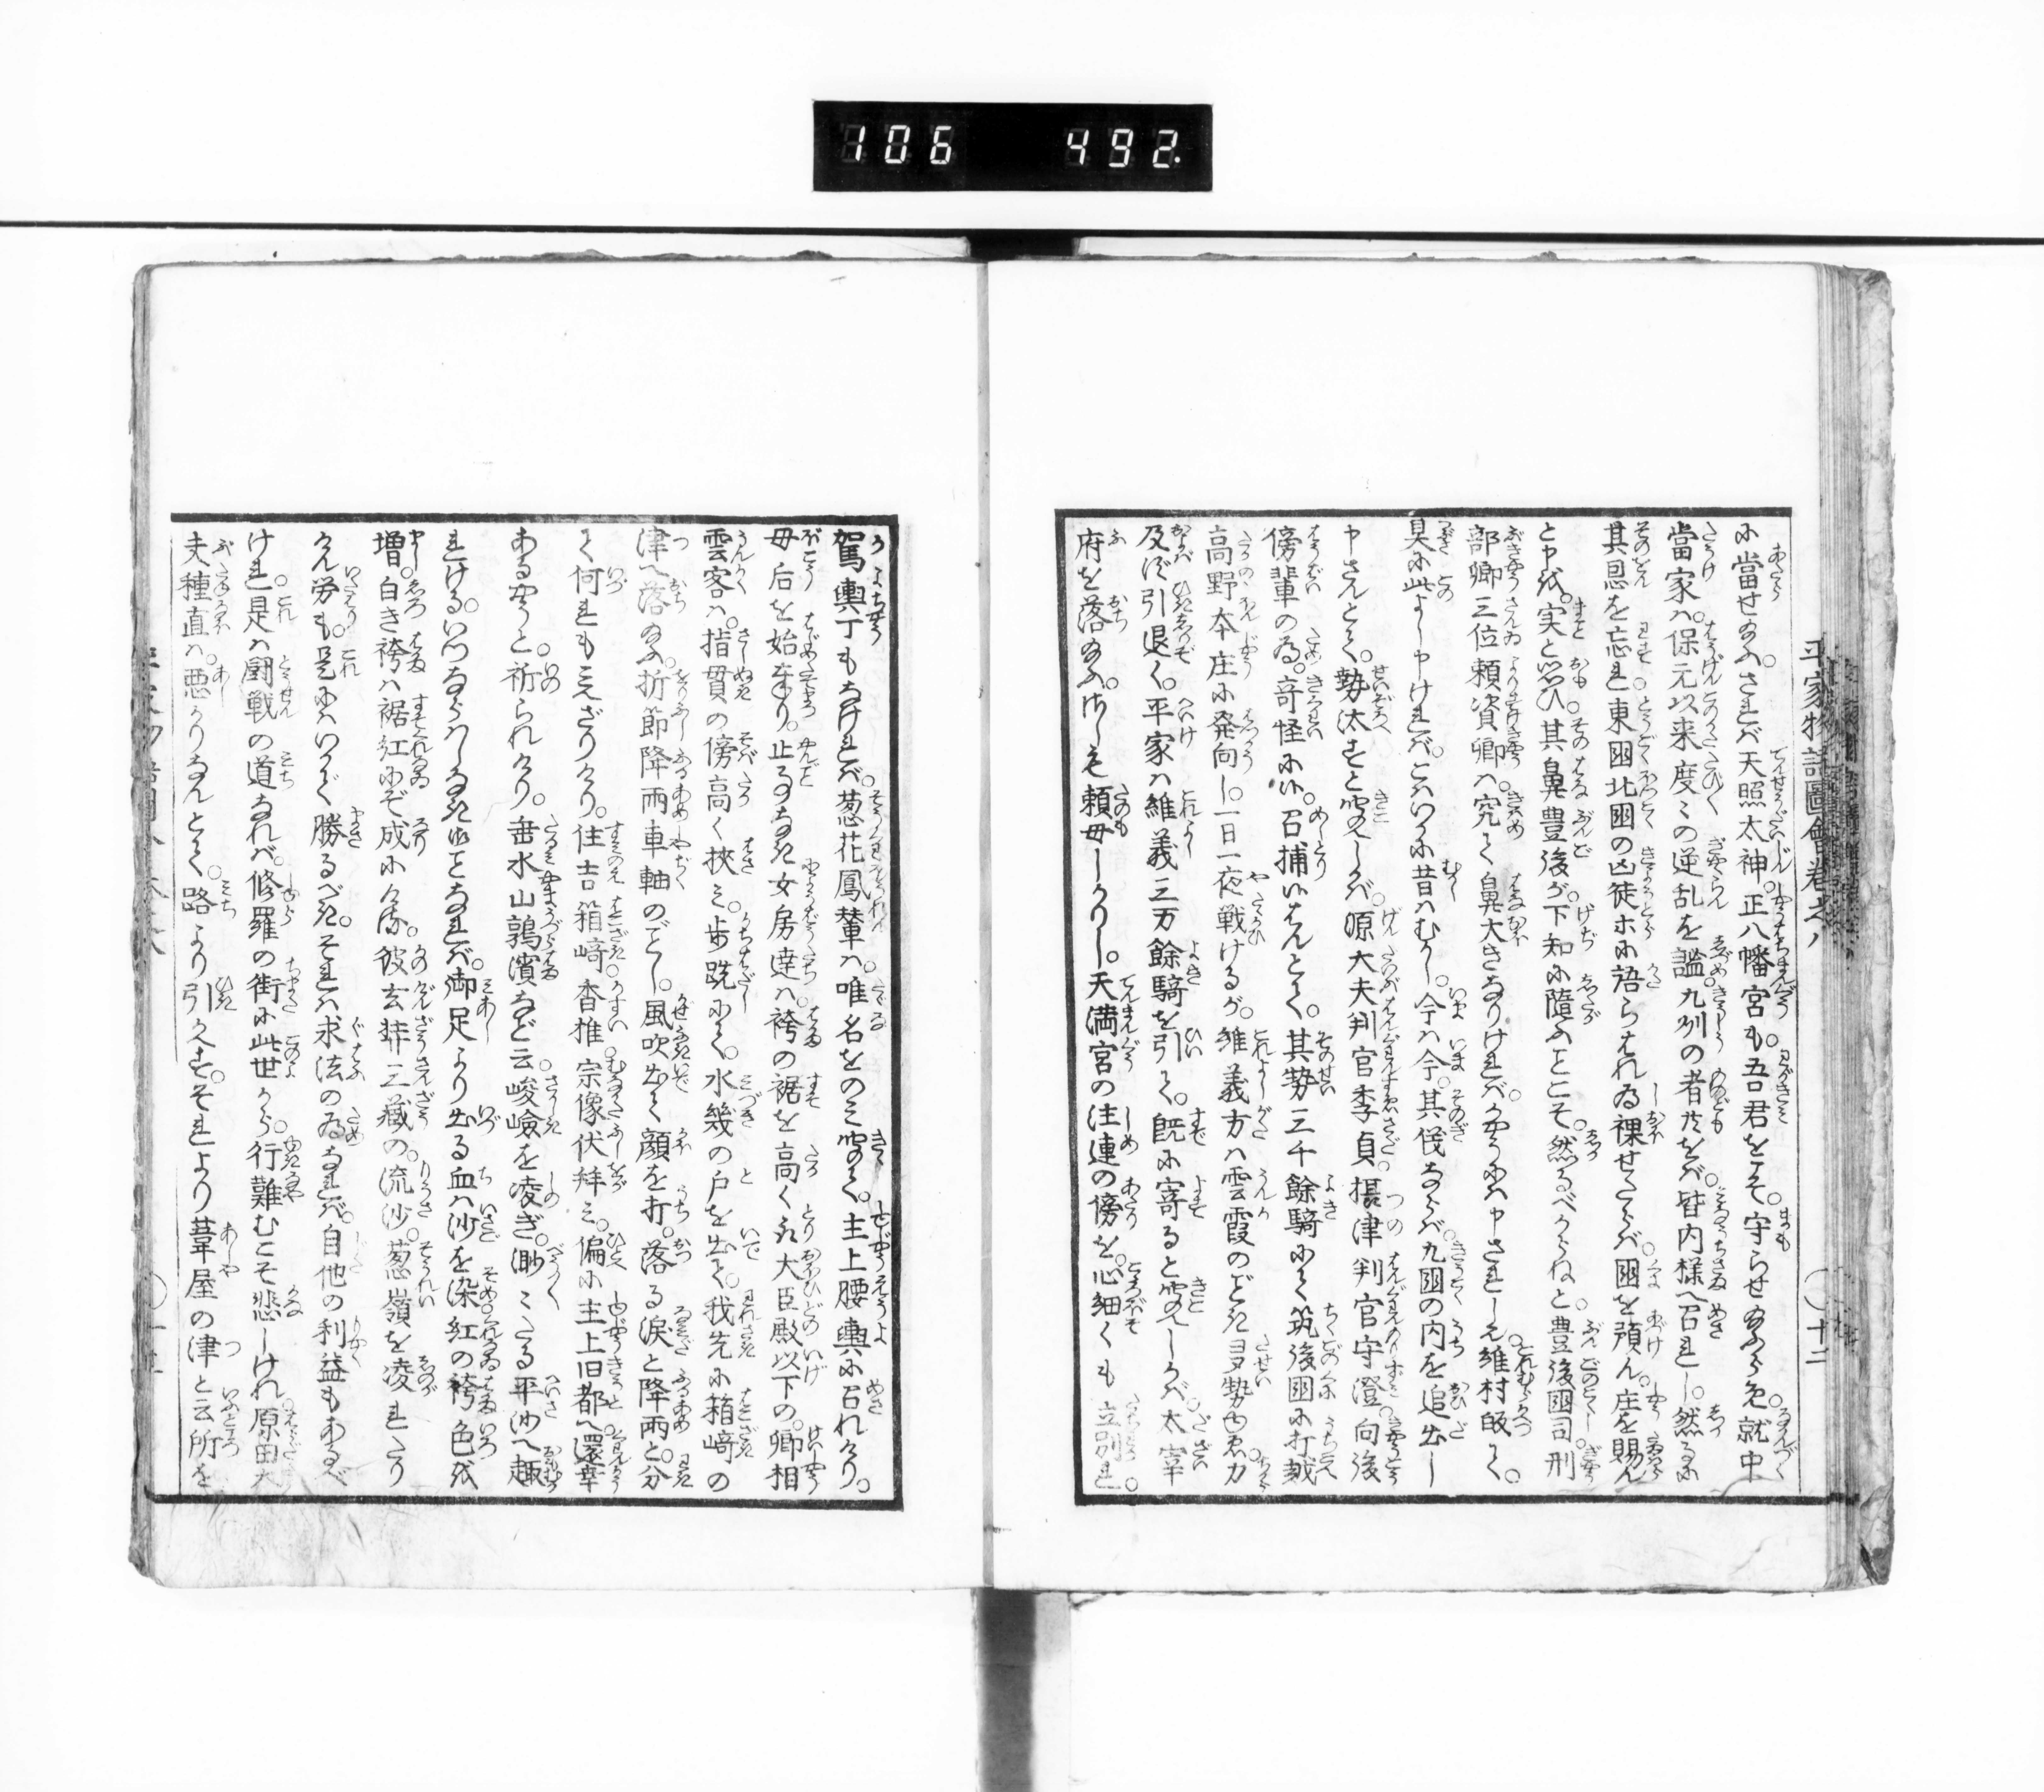 106 492.
平家物語圖會巻之八
十二
に當せ給ふ。されば天照太神。正八幡宮も。吾君をこそ。守らせ給ふらめ。就中
當家は。保元以来度々の逆乱を謐。九州の者共をば。皆内様へ召れし。然るに
其恩を忘れ。東国北国の凶徒等に語らはれ為課せたらば。国を預ん。庄を賜ん
と申を。実と思ひ。其鼻豊後が。下知に随ふことこそ。然るべからねと。豊後国司刑
部卿三位頼資卿は。究て鼻大きなりければ。かうには申されしを維村皈て。
具に此よし申ければ。こはいかに昔はむかし。今は今。其儀ならば。九国の内を追出し
申さんとて。勢汰すと聞へしかば。源大夫判官季貞。摂津判官守澄。向後
傍輩の為。奇怪に候。召捕候はんとて。其勢三千餘騎にて筑後国に打越
高野本庄に発向し。一日一夜戦けるが。維義方は雲霞のごとき多勢也ければ力
及ばず引退く。平家は維義三万餘騎を引て。既に寄ると聞へしかば。太宰
府を落給ふ。さしも頼母しかりし。天満宮の注連の傍を。心細くも 立別れ。
駕輿丁もなければ。葱花鳳輦は。唯名をのミ聞て。主上腰輿に召れけり。
母后を始奉り。止事なき女房達は。袴の裾を高く取大臣殿以下の。卿相
雲客は。指貫の傍高く挾ミ。歩跣にて。水幾の戸を出て。我先に箱崎の
津へ落給ふ。折節降雨車軸のごとし。風吹出て顔を打。落る涙と降雨と。分
て何れも見へざりけり。住吉箱崎。香椎。宗像伏拝ミ。偏に主上旧都へ還幸
あるやうと。祈られけり。垂水山鶉濱など云。峻嶮を凌ぎ。渺々たる平沙へ趣
れける。いつならはしなき御ことなれば。御足より出る血は沙を染。紅の袴色を
増。白き袴は裾紅にぞ成にける。彼玄弉三藏の。流沙。葱嶺を凌れたり
けん労も。是にはいかで勝るべき。それは求法の為なれば。自他の利益もあるべ
けれ。是は闘戦の道なれば。修羅の街に此世から。行難むこそ悲しけれ。原田大
夫種直は。悪かりなんとて。路より引へす。それより葦屋の津と云所を